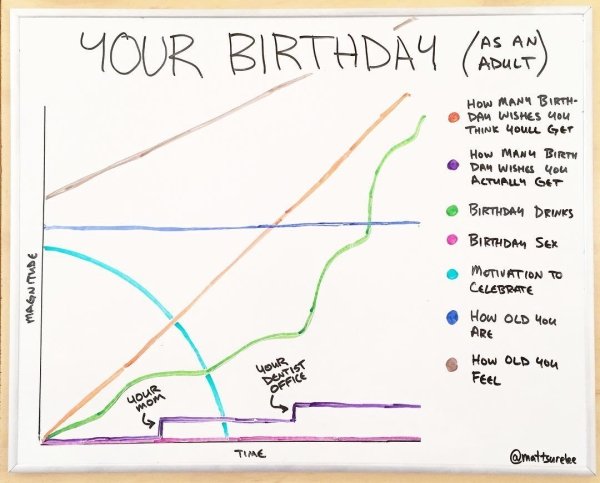 YOUR BIRTHDAY (AS AN
ADULT)
HOW MANY BIRTH-
DAY WISHES YOU
THINK YOULL GET
HOW MANY BIRTH
DAY WISHES YOU
ACTUALLY GET
BIRTHDAY DRINKS
BIRTHDAY SEX
MOTIVATION TO
CELEBRATE
HOW OLD YOU
ARE
HOW OLD YOU
FEEL
MAGNITUDE
YOUR
MOM
YOUR
DENTIST
OFFICE
TIME
@mattsurelee